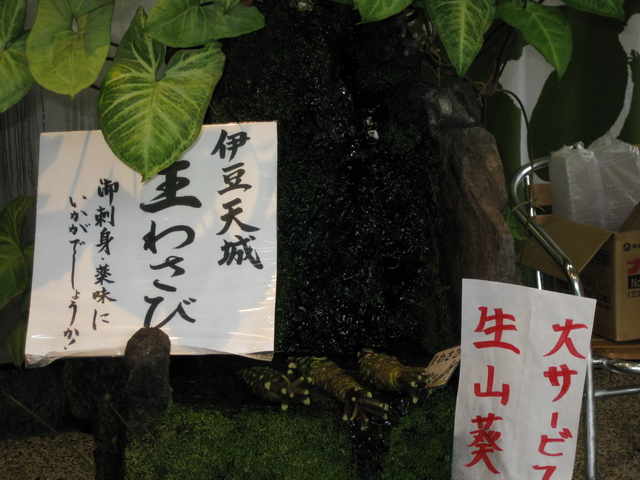 伊豆天城
生わさび
御刺身・薬味に
いかがでしょうか!
大サービス
生山葵